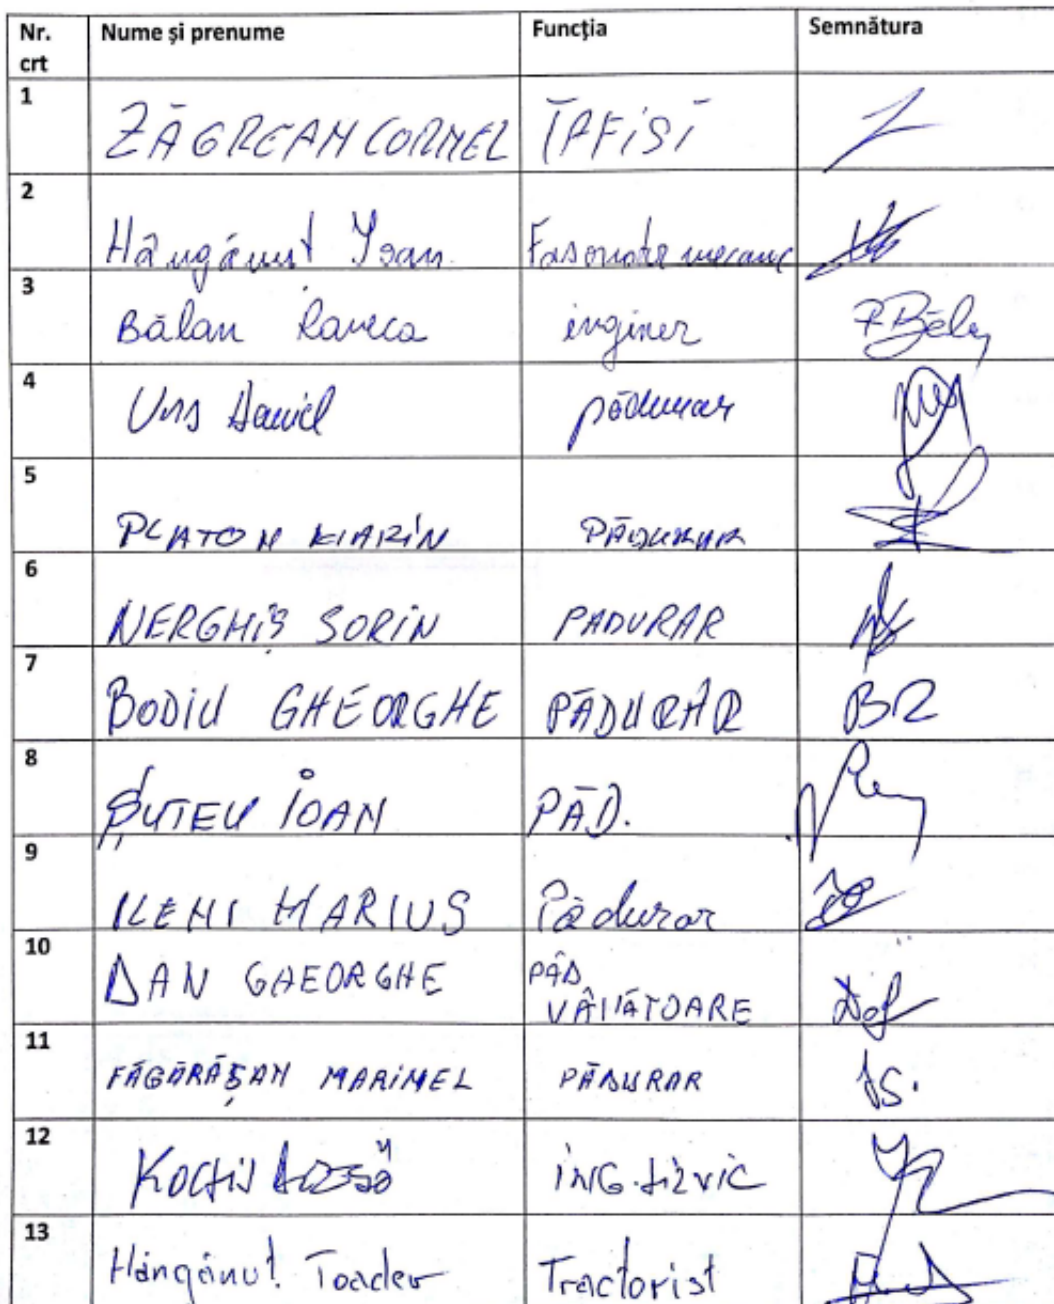 Nr. crt Nume și prenume Funcția Semnătura
1 ZĂGREAN CORNEL TAFIST
2 Hângănuț Ioan Fasonator mecanic
3 Bălan Raveca inginer
4 Urs Daniel pădurar
5 PLATON MARIN PĂDURAR
6 NERGHIȘ SORIN PADURAR
7 BODIU GHEORGHE PĂDURAR
8 ȘUTEU IOAN PĂD.
9 ILENI MARIUS Pădurar
10 DAN GHEORGHE PĂD VÂNĂTOARE
11 FĂGĂRĂȘAN MARINEL PĂDURAR
12 ING. SILVIC
13 Hângănuț Toader Tractorist